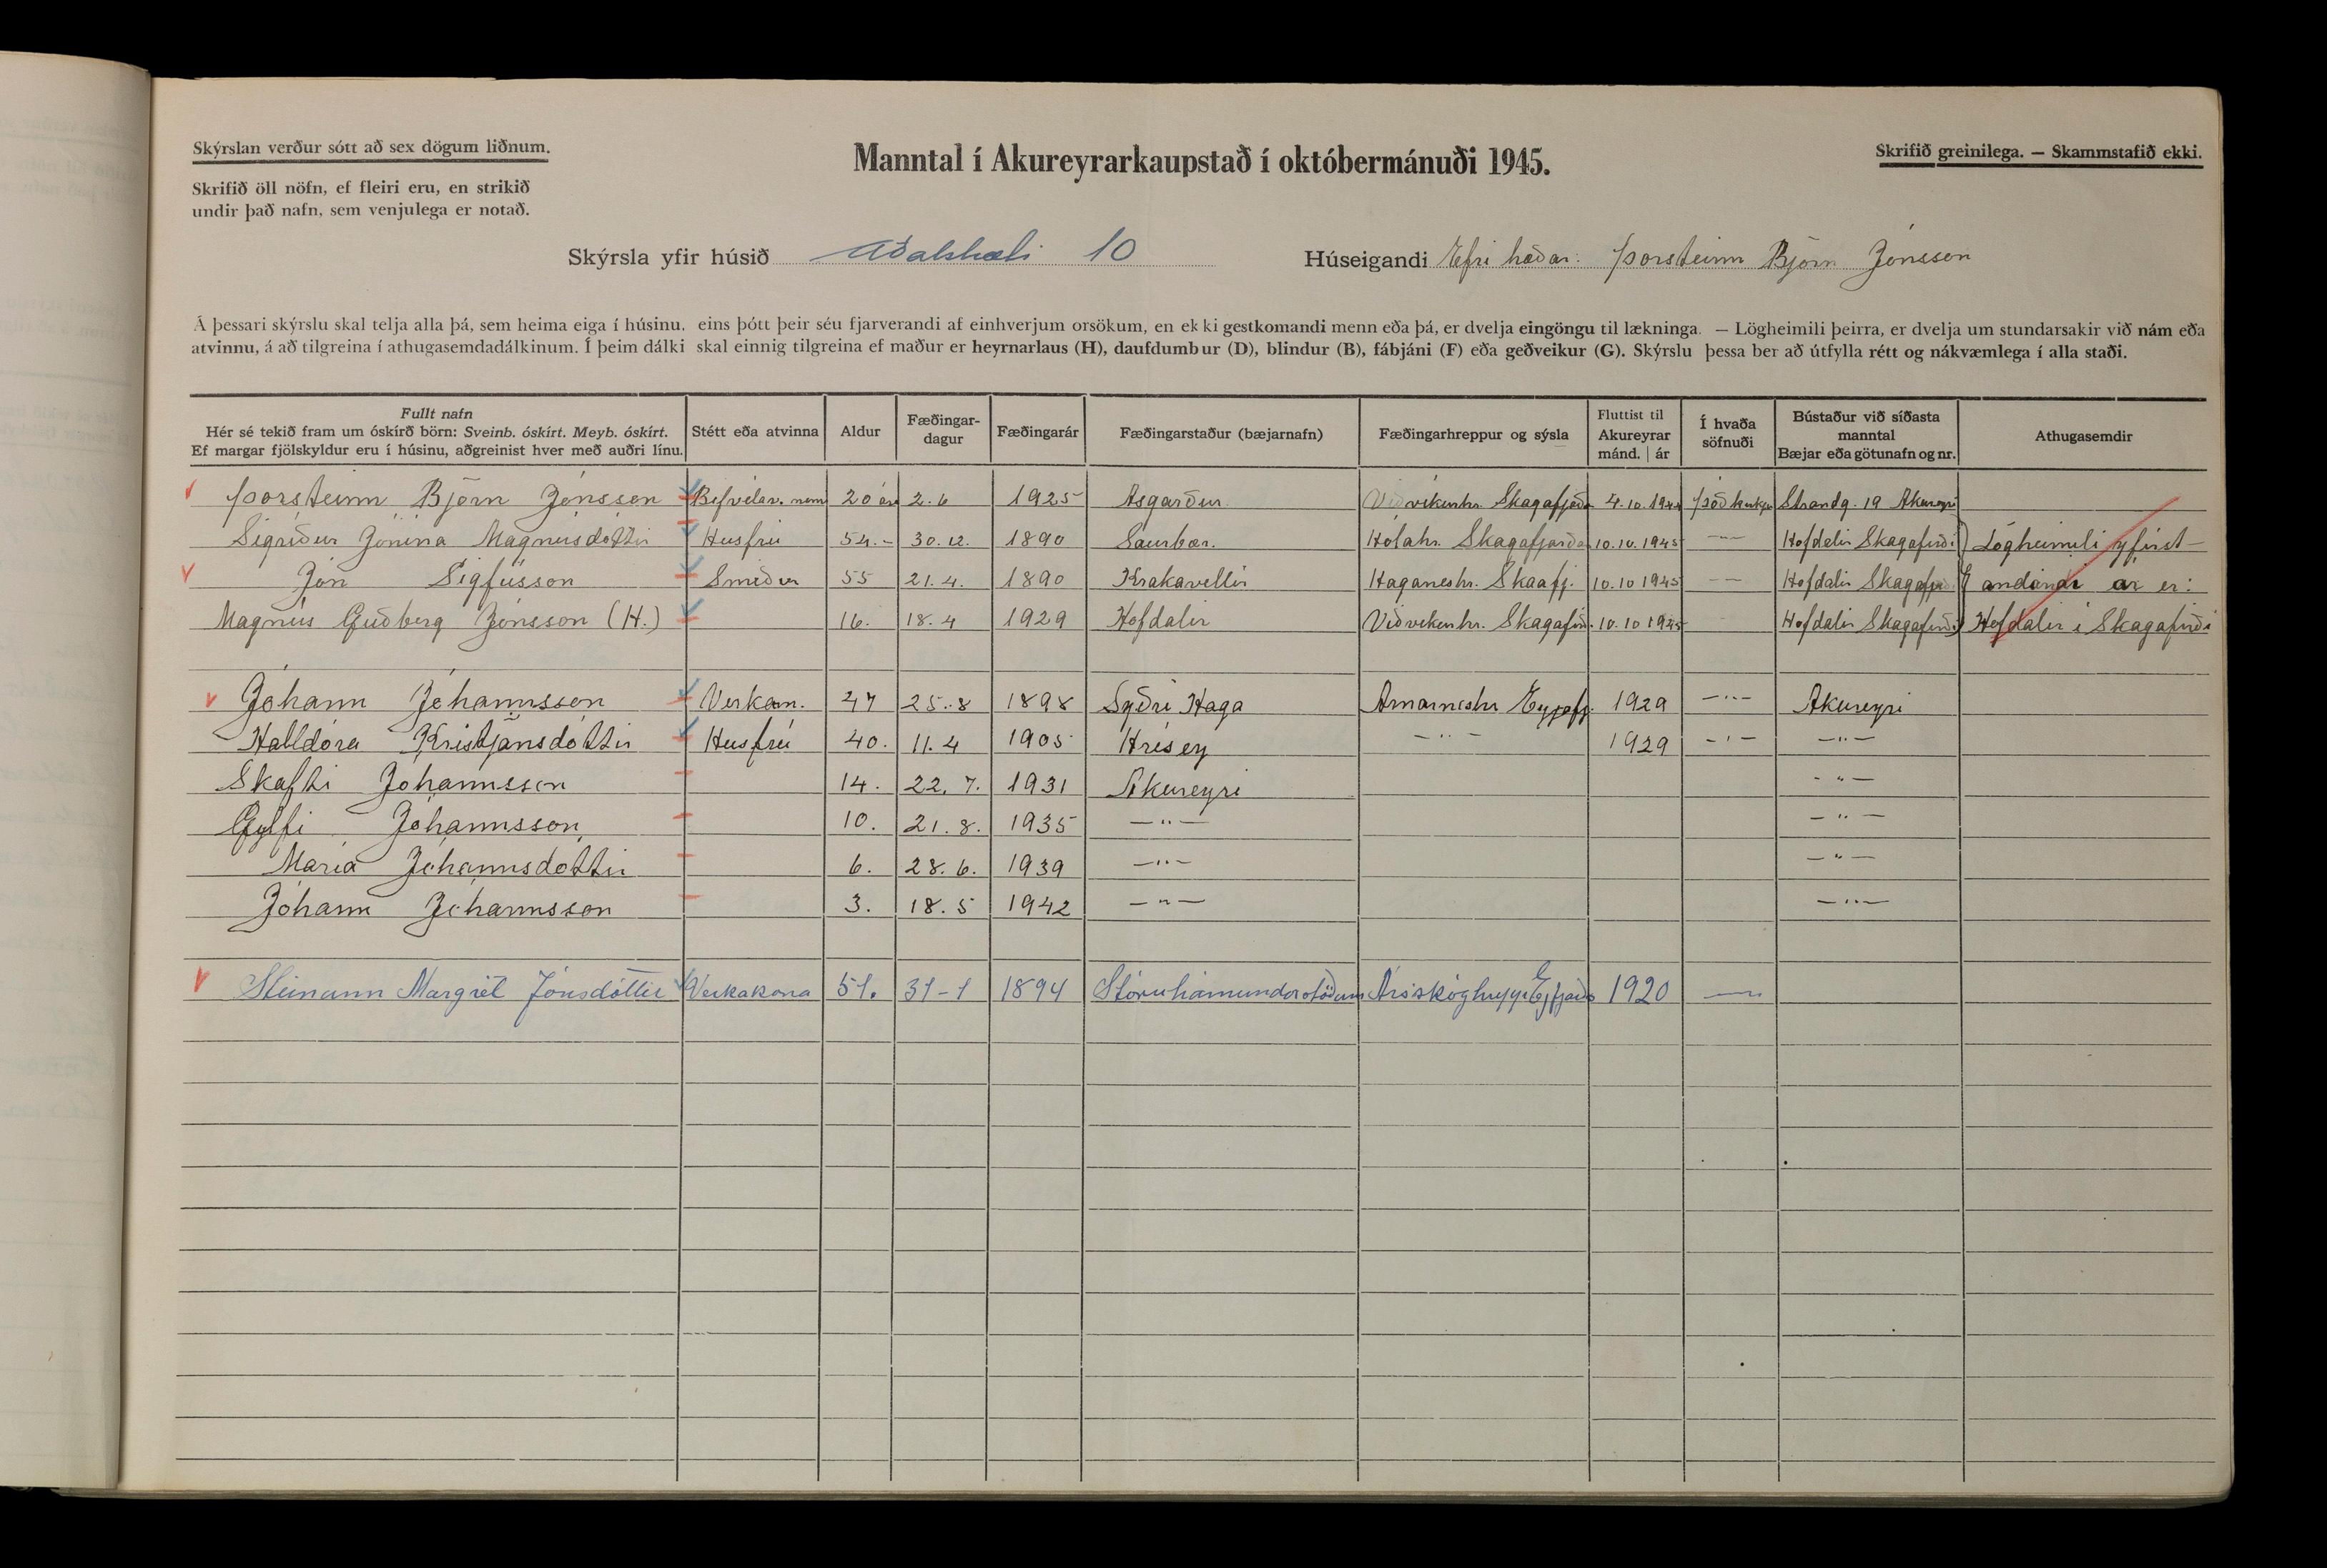 Skýrslan verður sótt að sex dögum liðnum.
Manntal í Akureyrarkaupstað í októbermánuði 1945.
Skrifið greinilega. — Skammstafið ekki.
Skrifið öll nöfn, ef fleiri eru, en strikið
undir það nafn, sem venjulega er notað.
Skýrsla yfir húsið 10
Húseigandi Efri hæðar: Þorsteinn Björn Jónsson
Á þessari skýrslu skal telja alla þá, sem heima eiga í húsinu, eins þótt þeir séu fjarverandi af einhverjum orsökum, en ekki gestkomandi menn eða þá, er dvelja eingöngu til lækninga. — Lögheimili þeirra, er dvelja um stundarsakir við nám eða
atvinnu, á að tilgreina í athugasemdadálkinum. Í þeim dálki skal einnig tilgreina ef maður er heyrnarlaus (H), daufdumbur (D), blindur (B), fábjáni (F) eða geðveikur (G). Skýrslu þessa ber að útfylla rétt og nákvæmlega í alla staði.
Fullt nafn
Hér sé tekið fram um óskírð börn: Sveinb. óskírt. Meyb. óskírt.
Ef margar fjölskyldur eru í húsinu, aðgreinist hver með auðri línu.
Stétt eða atvinna
Aldur
Fæðingar-
dagur
Fæðingarár
Fæðingarstaður (bæjarnafn)
Fæðingarhreppur og sýsla
Fluttist til
Akureyrar
mánd. | ár
Í hvaða
söfnuði
Bústaður við síðasta
manntal
Bæjar eða götunafn og nr.
Athugasemdir
Þorsteinn Björn Jónsson Bifvélav. nem 20 ára 2.6 1925 Ásgarður Viðvíkurhr. Skagafjarð 4.10.1944 Þjóðkirkju Strandg. 19 Akureyri
Sigríður Jónína Magnúsdóttir Húsfrú 54.- 30.12. 1890 Saurbær. Hólahr. Skagafjarða 10.10.1945 —〃— Hofdalir Skagafirði Lögheimili yfirst-
Jón Sigfússon Smiður 55 21.4. 1890 Krakavellir Haganeshr. Skaafj. 10.10 1945 —〃— Hofdalir Skagafj. andandi ár er:
Magnús Guðberg Jónsson (H.) 16. 18.4 1929 Hofdalir Viðvíkurhr. Skagafirð. 10.10 1945 Hofdalir Skagafirði Hofdalir í Skagafirði
Jóhann Jóhannsson Verkam. 47 25.8 1898 Syðri Haga Arnarneshr Eyjafj. 1929 —〃— Akureyri
Halldóra Kristjánsdóttir Húsfrú 40. 11.4 1905 Hrísey —〃— 1929 —〃— —〃—
Skafti Jóhannsson 14. 22.7. 1931 Akureyri —〃—
Gylfi Jóhannsson 10. 21.8. 1935 —〃— —〃—
María Jóhannsdóttir 6. 28.6. 1939 —〃— —〃—
Jóhann Jóhannsson 3. 18.5 1942 —〃— —〃—
Steinunn Margrét Jónsdóttir Verkakona 51. 31-1 1894 Stóruhámundarstöðum 1920 —〃—